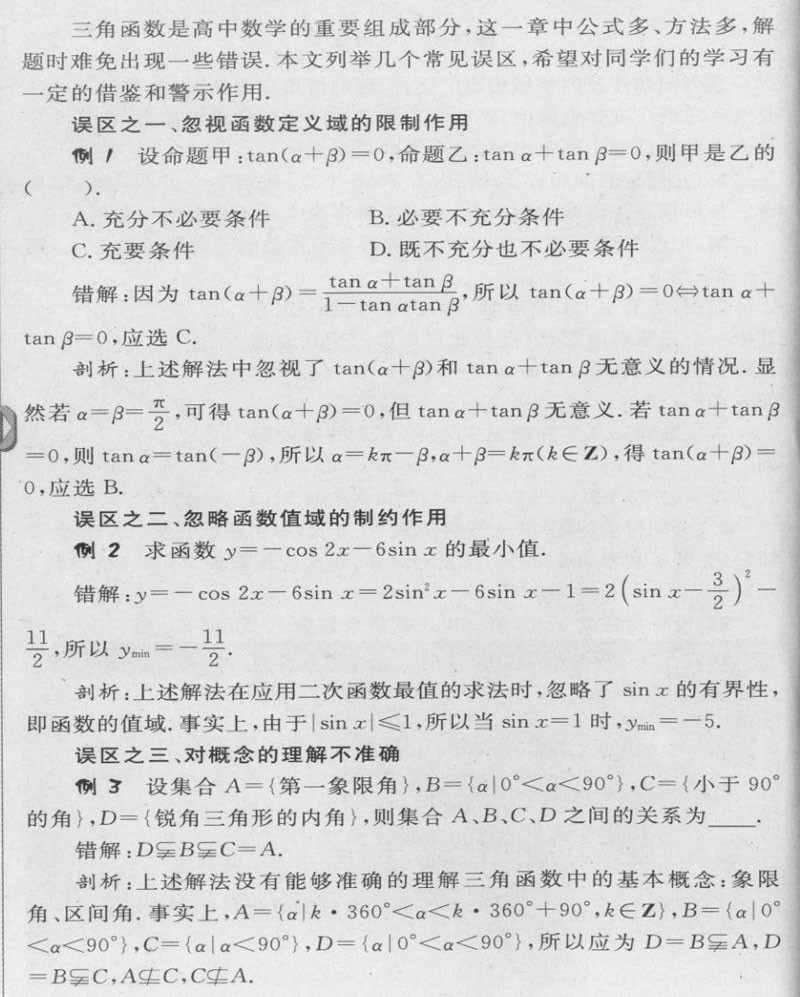 三角函数是高中数学的重要组成部分,这一章中公式多、方法多,解
题时难免出现一些错误.本文列举几个常见误区,希望对同学们的学习有
一定的借鉴和警示作用.
误区之一、忽视函数定义域的限制作用
例 1 设命题甲:tan(α+β)=0,命题乙:tan α+tan β=0,则甲是乙的
( ).
A. 充分不必要条件 B. 必要不充分条件
C. 充要条件 D. 既不充分也不必要条件
错解:因为 tan(α+β)=\frac{tan α+tan β}{1-tan αtan β},所以 tan(α+β)=0⇔tan α+
tan β=0,应选 C.
剖析:上述解法中忽视了 tan(α+β)和 tan α+tan β 无意义的情况.显
然若 α=β=\frac{π}{2},可得 tan(α+β)=0,但 tan α+tan β 无意义.若 tan α+tan β
=0,则 tan α=tan(-β),所以 α=kπ-β,α+β=kπ(k∈Z),得 tan(α+β)=
0,应选 B.
误区之二、忽略函数值域的制约作用
例 2 求函数 y=-cos 2x-6sin x 的最小值.
错解:y=-cos 2x-6sin x=2sin²x-6sin x-1=2(sin x-\frac{3}{2})²-
\frac{11}{2},所以 yₘᵢₙ=-\frac{11}{2}.
剖析:上述解法在应用二次函数最值的求法时,忽略了 sin x 的有界性,
即函数的值域.事实上,由于|sin x|≤1,所以当 sin x=1 时,yₘᵢₙ=-5.
误区之三、对概念的理解不准确
例 3 设集合 A={第一象限角},B={α|0°<α<90°},C={小于 90°
的角},D={锐角三角形的内角},则集合 A、B、C、D 之间的关系为____.
错解:D⫋B⫋C=A.
剖析:上述解法没有能够准确的理解三角函数中的基本概念:象限
角、区间角.事实上,A={α|k·360°<α<k·360°+90°,k∈Z},B={α|0°
<α<90°},C={α|α<90°},D={α|0°<α<90°},所以应为 D=B⫋A,D
=B⫋C,A⊄C,C⊄A.